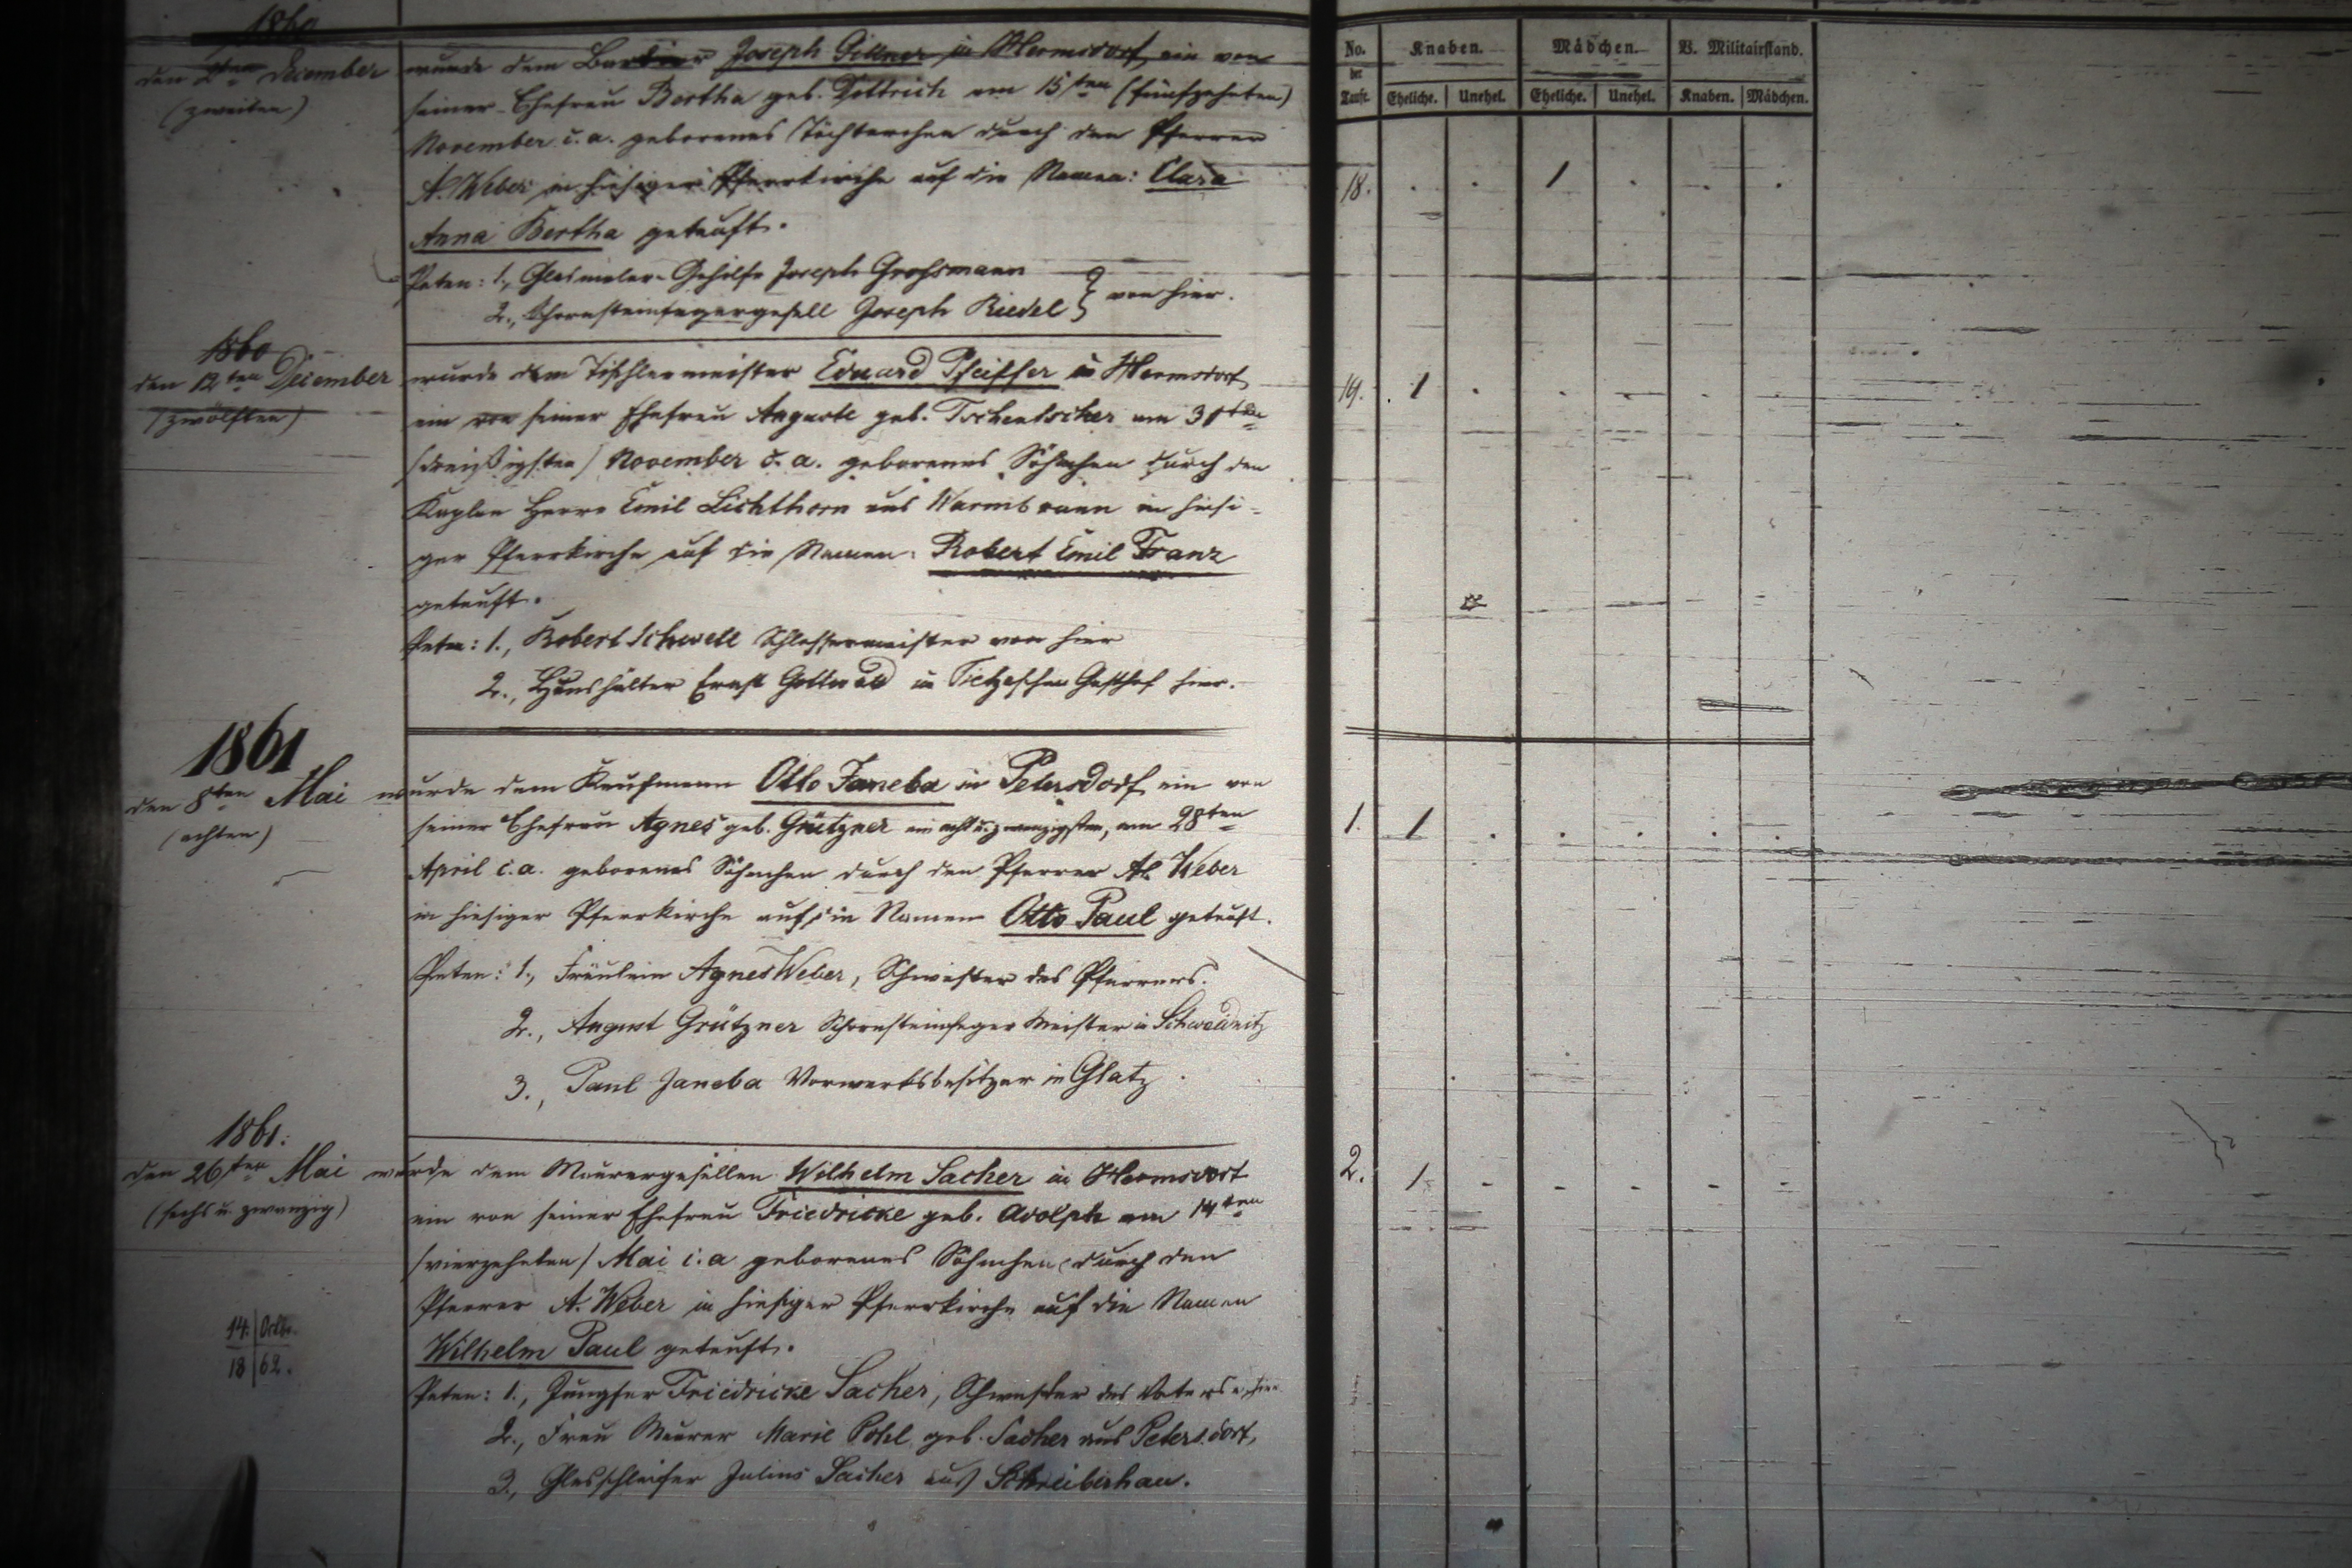 1860
den 2ten December
(zweiten)
wurde dem Joseph in Hermsdorf ein von
seiner Ehefrau Bertha geb. Dittrich am 15ten (fünfzehnten)
November c. a. geborenes Töchterchen durch den Pfarrer
A. Weber in hiesiger Pfarrkirche auf die Namen: Clara
Anna Bertha getauft.
Paten: 1., Glasmaler-Gehilfe Joseph Grohsmann
2., Schornsteinfegergesell Joseph Riedel } von hier.
1860
den 12ten December
(zwölften)
wurde dem Tischlermeister Eduard Pfeiffer in Hermsdorf
ein von seiner Ehefrau Auguste geb. Tschentscher am 30ten
(dreißigsten) November c. a. geborenes Söhnchen durch den
Kaplan Herrn Emil Lichthorn aus Warmbrunn in hiesi-
ger Pfarrkirche auf die Namen: Robert Emil Franz
getauft.
Paten: 1., Robert Schwell Schlossermeister von hier
2., Haushälter Ernst Gottwald im Tietzeschen Gasthof hier.
1861
den 8ten Mai
(achten)
wurde dem Kaufmann Otto Janeba in Petersdorf ein von
seiner Ehefrau Agnes geb. Grützner am acht u. zwanzigsten, am 28ten
April c. a. geborenes Söhnchen durch den Pfarrer Weber
in hiesiger Pfarrkirche auf die Namen Otto Paul getauft.
Paten: 1., Fräulein Agnes Weber, Schwester des Pfarrers.
2., August Grützner Schornsteinfeger Meister in Schweidnitz
3., Paul Janeba Vorwerksbesitzer in Glatz
1861.
den 26ten Mai
(sechs u. zwanzig)
wurde dem Maurergesellen Wilhelm Sacher in Hermsdorf
ein von seiner Ehefrau Friedricke geb. Adolph am 14ten
(vierzehnten) Mai c. a geborenes Söhnchen durch den
Pfarrer A. Weber in hiesiger Pfarrkirche auf die Namen
Wilhelm Paul getauft.
14. Octbr.
18 62.
Paten: 1., Jungfer Friedricke Sacher, Schwester des Vaters v. hier
2., Frau Maurer Marie Pohl geb. Sacher aus Petersdorf,
3., Glasschleifer Julius Sacher aus Schreiberhau.
No. Knaben. Mädchen. B. Militairstand.
der
Taufe. Eheliche. Unehel. Eheliche. Unehel. Knaben. Mädchen.
18. . . 1 . . .
19. 1 . . . . .
1. 1 . . . . .
2. 1 - - - - -